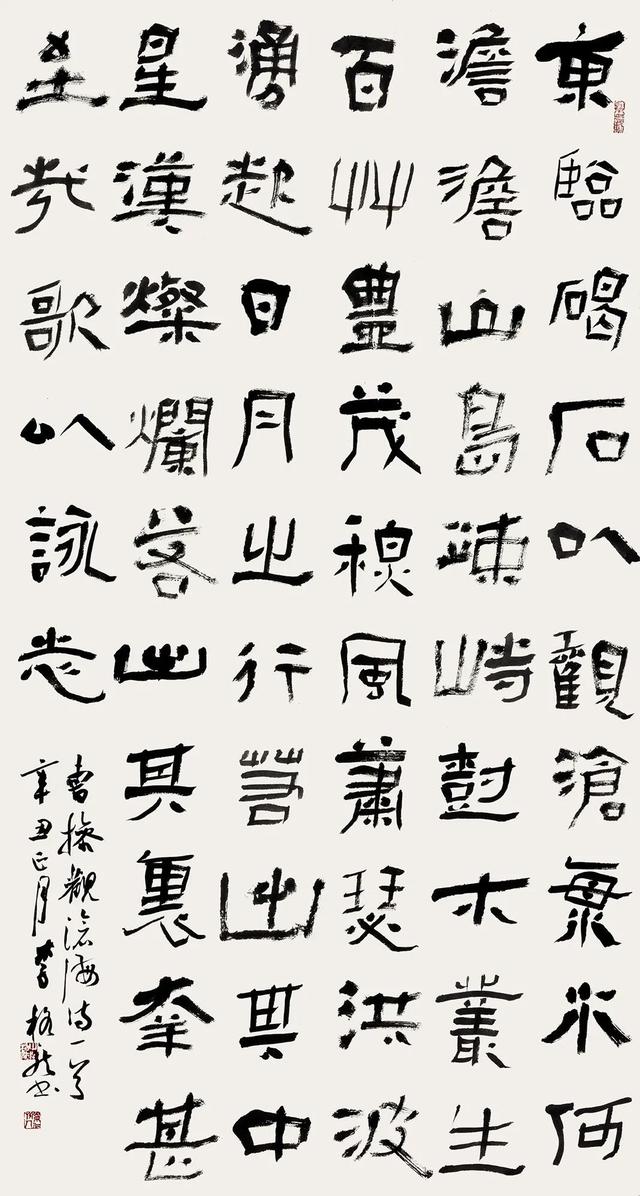 東臨碣石以觀滄海水何
澹澹山島竦峙尌木叢生
百艸豐茂秋風蕭瑟洪波
湧起日月之行若出其中
星漢燦爛若出其裏幸甚
至哉歌以詠志
曹操觀滄海詩一首
辛丑正月書